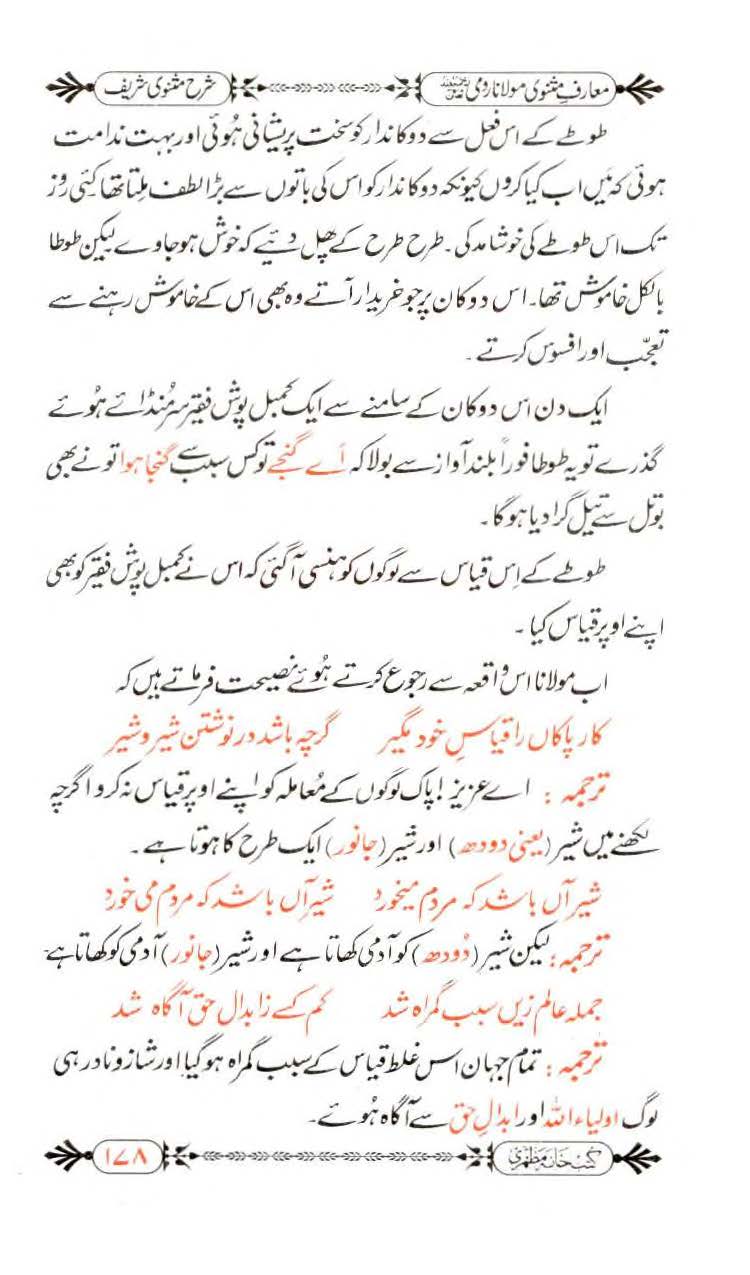 معارفِ مثنوی مولانا رومی رحمۃ اللہ علیہ شرح مثنوی شریف
طوطے کے اس فعل سے دوکاندار کو سخت پریشانی ہُوئی اور بہت ندامت
ہوئی کہ مَیں اب کیا کروں کیونکہ دوکاندار کو اس کی باتوں سے بڑا لطف مِلتا تھا کئی روز
تک اس طوطے کی خوشامد کی۔ طرح طرح کے پھل دئیے کہ خوش ہوجاوے لیکن طوطا
بالکل خاموش تھا۔ اس دوکان پر جو خریدار آتے وہ بھی اس کے خاموش رہنے سے
تعجّب اور افسوس کرتے۔
ایک دن اس دوکان کے سامنے سے ایک کمبل پوش فقیر سر مُنڈائے ہُوئے
گذرے تو یہ طوطا فوراً بلند آواز سے بولا کہ اَے گنجے تو کس سبب سے گنجا ہوا تو نے بھی
بوتل سے تیل گرا دیا ہوگا۔
طوطے کے اِس قیاس سے لوگوں کو ہنسی آگئی کہ اس نے کمبل پوش فقیر کو بھی
اپنے اوپر قیاس کیا۔
اب مولانا اس واقعہ سے رجوع کرتے ہُوئے نصیحت فرماتے ہیں کہ
کار پاکاں را قیاسِ خود مگیر گرچہ باشد در نوشتن شیر و شیر
ترجمہ : اے عزیز! پاک لوگوں کے مُعاملہ کو اپنے اوپر قیاس نہ کرو اگرچہ
لکھنے میں شیر (یعنی دودھ) اور شیر (جانور) ایک طرح کا ہوتا ہے۔
شیر آں باشد کہ مردم میخورد شیر آں باشد کہ مردم می خورد
ترجمہ : لیکن شیر (دُودھ) کو آدمی کھاتا ہے اور شیر (جانور) آدمی کو کھاتا ہے۔
جملہ عالم زیں سبب گمراہ شد کم کسے ز ابدال حق آگاہ شد
ترجمہ : تمام جہان اس غلط قیاس کے سبب گمراہ ہوگیا اور شاز و نادر ہی
لوگ اولیاء اللہ اور ابدالِ حق سے آگاہ ہُوئے۔
کتب خانہ مظہری ۱۷۸